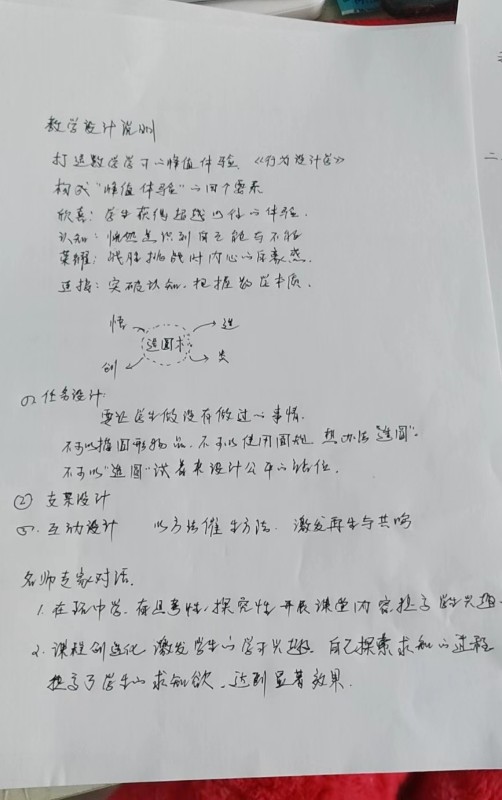 教学设计说明
打造数学学习的峰值体验 《行为设计学》
构成“峰值体验”的四个要素
欣喜：学生获得超越的体验.
认知：恍然意识到自己能与不能
荣耀：战胜挑战时内心的
连接：突破认知.把握数学本质.
悟 造
造圆术
创 类
①任务设计:
要让学生做没有做过的事情.
不可以描圆形物品.不可以使用圆规 想办法“造圆”.
不可以“造圆”试着来设计公平的站位.
② 支架设计
互动设计 以方法催生方法. 激发再生与共鸣
名师专家对话.
1. 在玩中学.有思考性,探究性 开展课堂内容提高学生兴趣.
2. 课程创造化 激发学生的学习兴趣. 自己探索求知的过程
提高了学生的求知欲.达到显著效果.
二